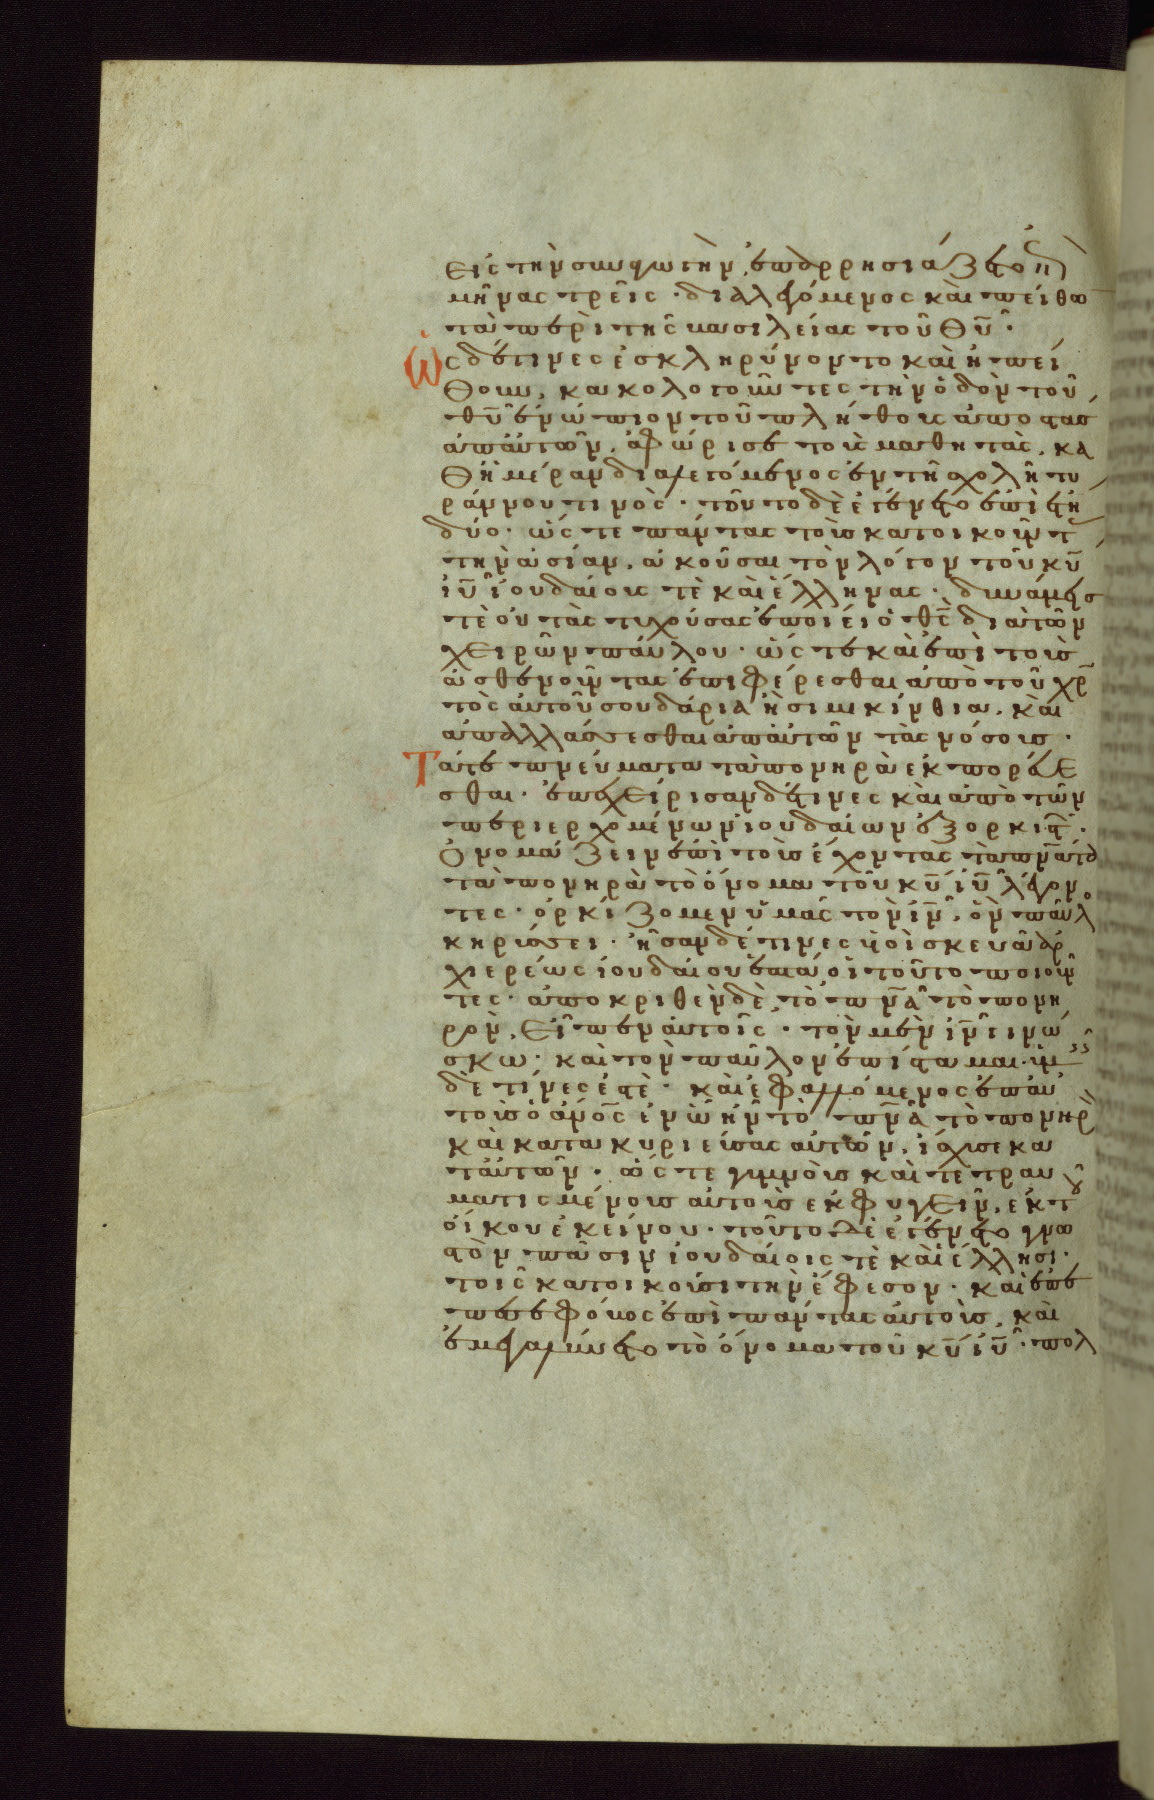 εις τὴν συναγωγὴν, ἐπαρρησιάζετο ἐπὶ
μῆνας τρεῖς · διαλεγόμενος καὶ πείθω
τὰ περὶ τῆς βασιλείας τοῦ θυ ·
ὡς δέ τινες ἐσκληρύνοντο καὶ ἠπεί
θουν, κακολογοῦντες τὴν ὁδὸν τοῦ
θυ ἐνώπιον τοῦ πλήθους ἀποστὰσ
ἀπ αὐτῶν, ἀφώρισε τοὺς μαθητὰς, κα
θ ἡμέραν διαλεγόμενος ἐν τῆ σχολῆ τυ
ράννου τινὸς · τοῦτο δὲ ἐγένετο ἐπὶ ἔτη
δύο · ὥς τε πάντας τοὺς κατοικοῦντ
τὴν ἀσίαν, ἀκοῦσαι τὸν λόγον τοῦ κυ
ιυ ἰουδαίους τὲ καὶ ἕλληνας · δυνάμεισ
τὲ οὐ τὰς τυχούσας ἐποίει ὁ θς διὰ τῶν
χειρῶν παύλου · ὥς τε καὶ ἐπὶ τοὺς
ἀσθενοῦντας ἐπιφέρεσθαι ἀπὸ τοῦ χρ
τὸς αὐτοῦ σουδάρια ἢ σιμικίνθια, καὶ
ἀπαλλάσσεσθαι ἀπ αὐτῶν τὰς νόσους ·
Τά τε πνεύματα τὰ πονηρὰ ἐκπορεύε
σθαι · ἐπεχείρισαν δέ τινες καὶ ἀπὸ τῶν
περιερχομένων ἰουδαίων ἐξορκιστ ·
ὀνομάζειν ἐπὶ τοὺς ἔχοντας τὰ πνατα
τὰ πονηρὰ τὸ ὄνομα τοῦ κυ ιυ λέγον
τες · ὁρκίζομεν ὑμᾶς τὸν ιν, ὃν παῦλο
κηρύσσει · ἦσαν δέ τινες υἱοὶ σκευᾶ ἀρ
χιερέως ἰουδαίου ἑπτὰ οἱ τοῦτο ποιοῦν
τες · ἀποκριθὲν δὲ, τὸ πνα τὸ πονη
ρὸν, εἶπεν αὐτοῖς · τὸν μὲν ιν γινώ
σκω · καὶ τὸν παῦλον ἐπίσταμαι · ὑμεῖς
δὲ τίνες ἐστὲ · καὶ ἐφαλλόμενος ἐπ αὐ
τοὺς ὁ ανος ἐν ᾧ ἦν τὸ πνα τὸ πονηρὸ
καὶ κατακυριεύσας αὐτῶν, ἴσχυσε κα
τ αὐτῶν · ὥς τε γυμνοὺς καὶ τετραυ
ματισμένους αὐτοὺς ἐκφυγεῖν, ἐκ του
οἴκου ἐκείνου · τοῦτο δὲ ἐγένετο γνω
στὸν πᾶσιν ἰουδαίοις τὲ καὶ ἕλλησι ·
τοῖς κατοικοῦσι τὴν ἔφεσον · καὶ ἐπέ
πεσε φόβος ἐπὶ πάντας αὐτοὺς, καὶ
ἐμεγαλύνετο τὸ ὄνομα τοῦ κυ ιυ · πολ